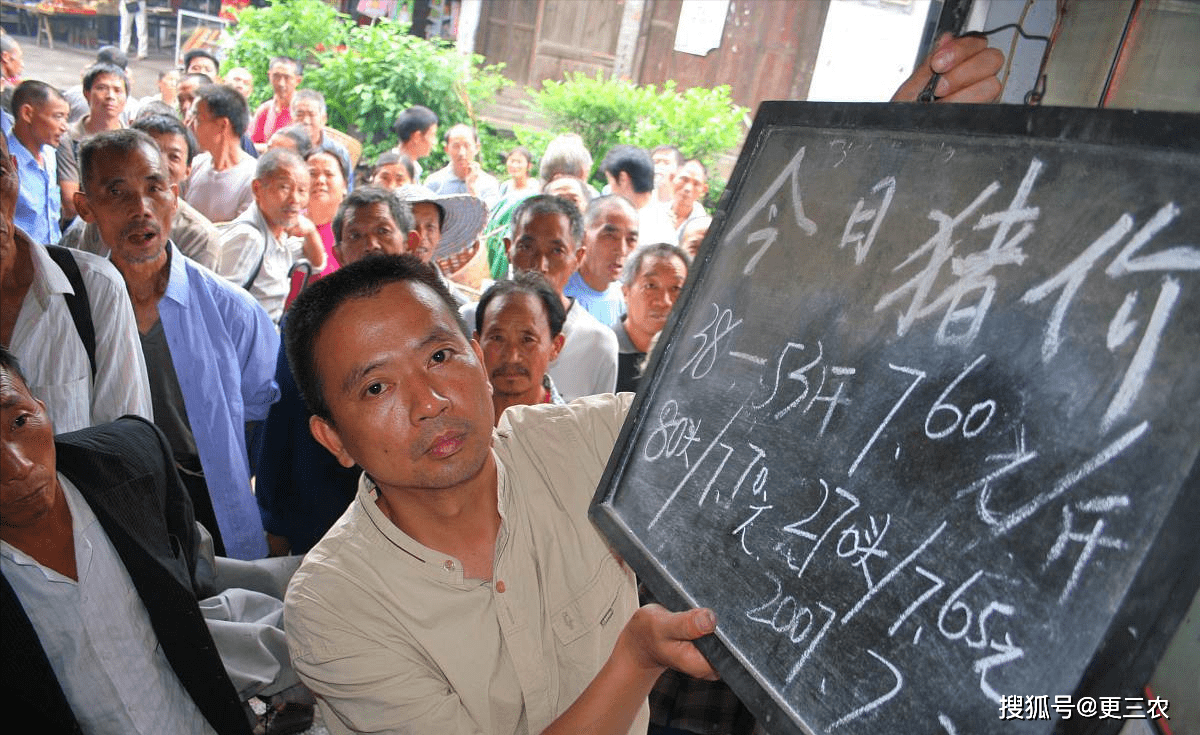 今日猪价
38—53斤 7.60元/斤
80头/7.70元 270头/7.65元
2007.7
搜狐号@更三农